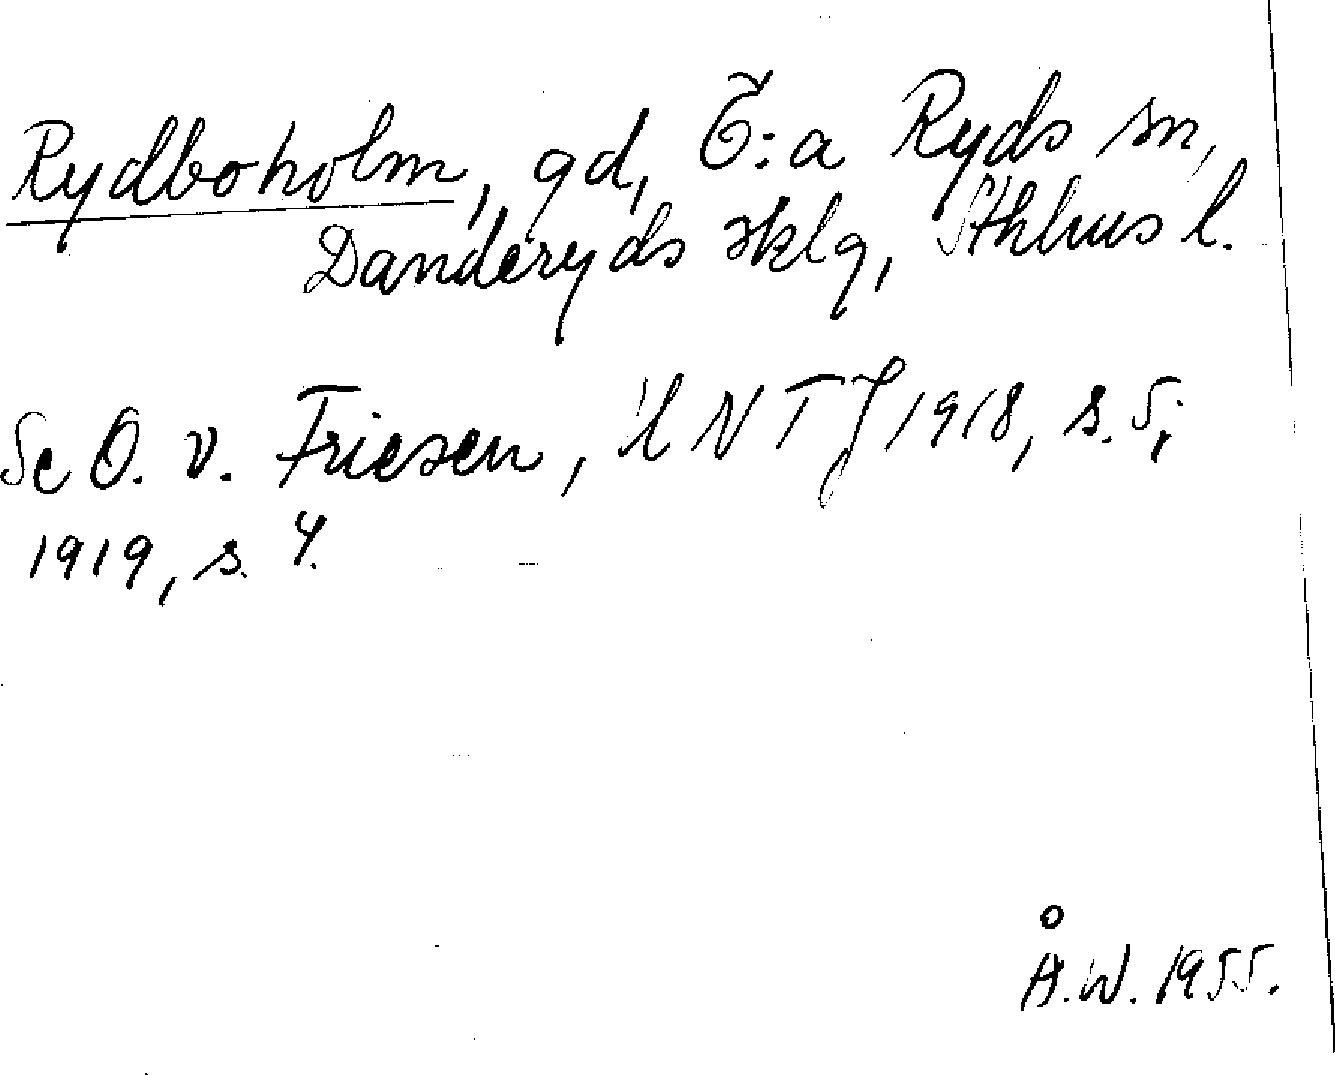 Rydboholm, gd, Ö:a Ryds sn,
Danderyds sklg, Sthlms l.
Se O. v. Friesen, i NTJ 1918, s. 5;
1919, s. 4.
Å.W. 1955.